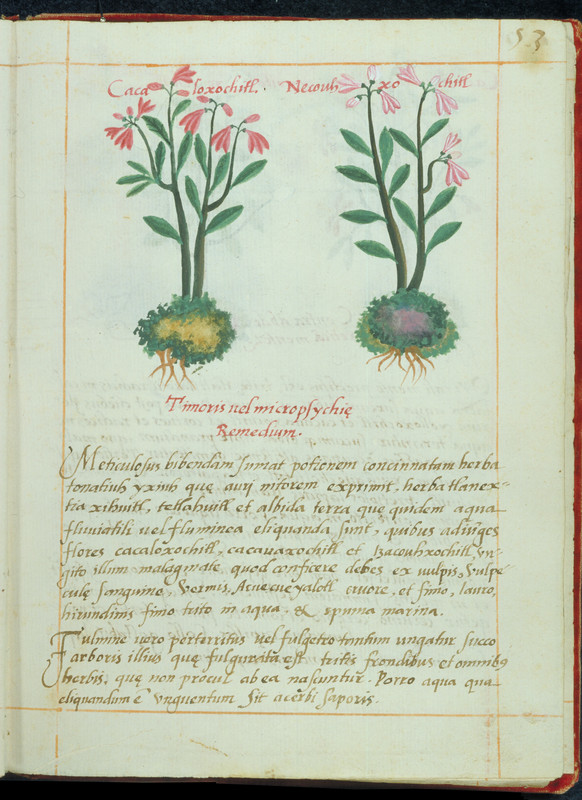 53
Cacaloxochitl. Necouhxochitl
Timoris uel micropsychię
Remedium.
Meticulosus bibendam sumat potionem concinnatam herba
tonatiuh yxiuh quę aurj nitorem exprimit, herba tlanex-
tia xihuitl, tetlahuitl et albida terra quę quidem aqua
fluuiatili uel fluminea eliquanda sunt, quibus adiūges
flores cacaloxochitl, cacauaxochitl et tzacouhxochitl, Vn-
gito illum malagmate, quod conficere debes ex uulpis, Vulpe-
culę sanguine, Vermis, cruore, et fimo, lauro,
hirundinis fimo trito in aqua. & spuma marina.
Fulmine uero perterritus uel fulgetro tantum ungatur succo
arboris illius quę fulgurita est, tritis frondibus et omnibꝯ
herbis, quę non procul ab ea nascuntur. Porro aqua qua
eliquandum ē Vnguentum sit acerbi saporis.